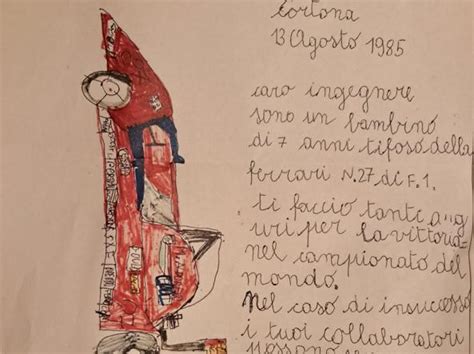 Cortona
13 Agosto 1985
caro ingegnere
sono un bambino
di 7 anni tifoso della
ferrari N.27 di F.1.
ti faccio tanti aug
uri per la vittoria
nel campionato del
mondo.
Nel caso di insuccesso
i tuoi collaboratori
possono